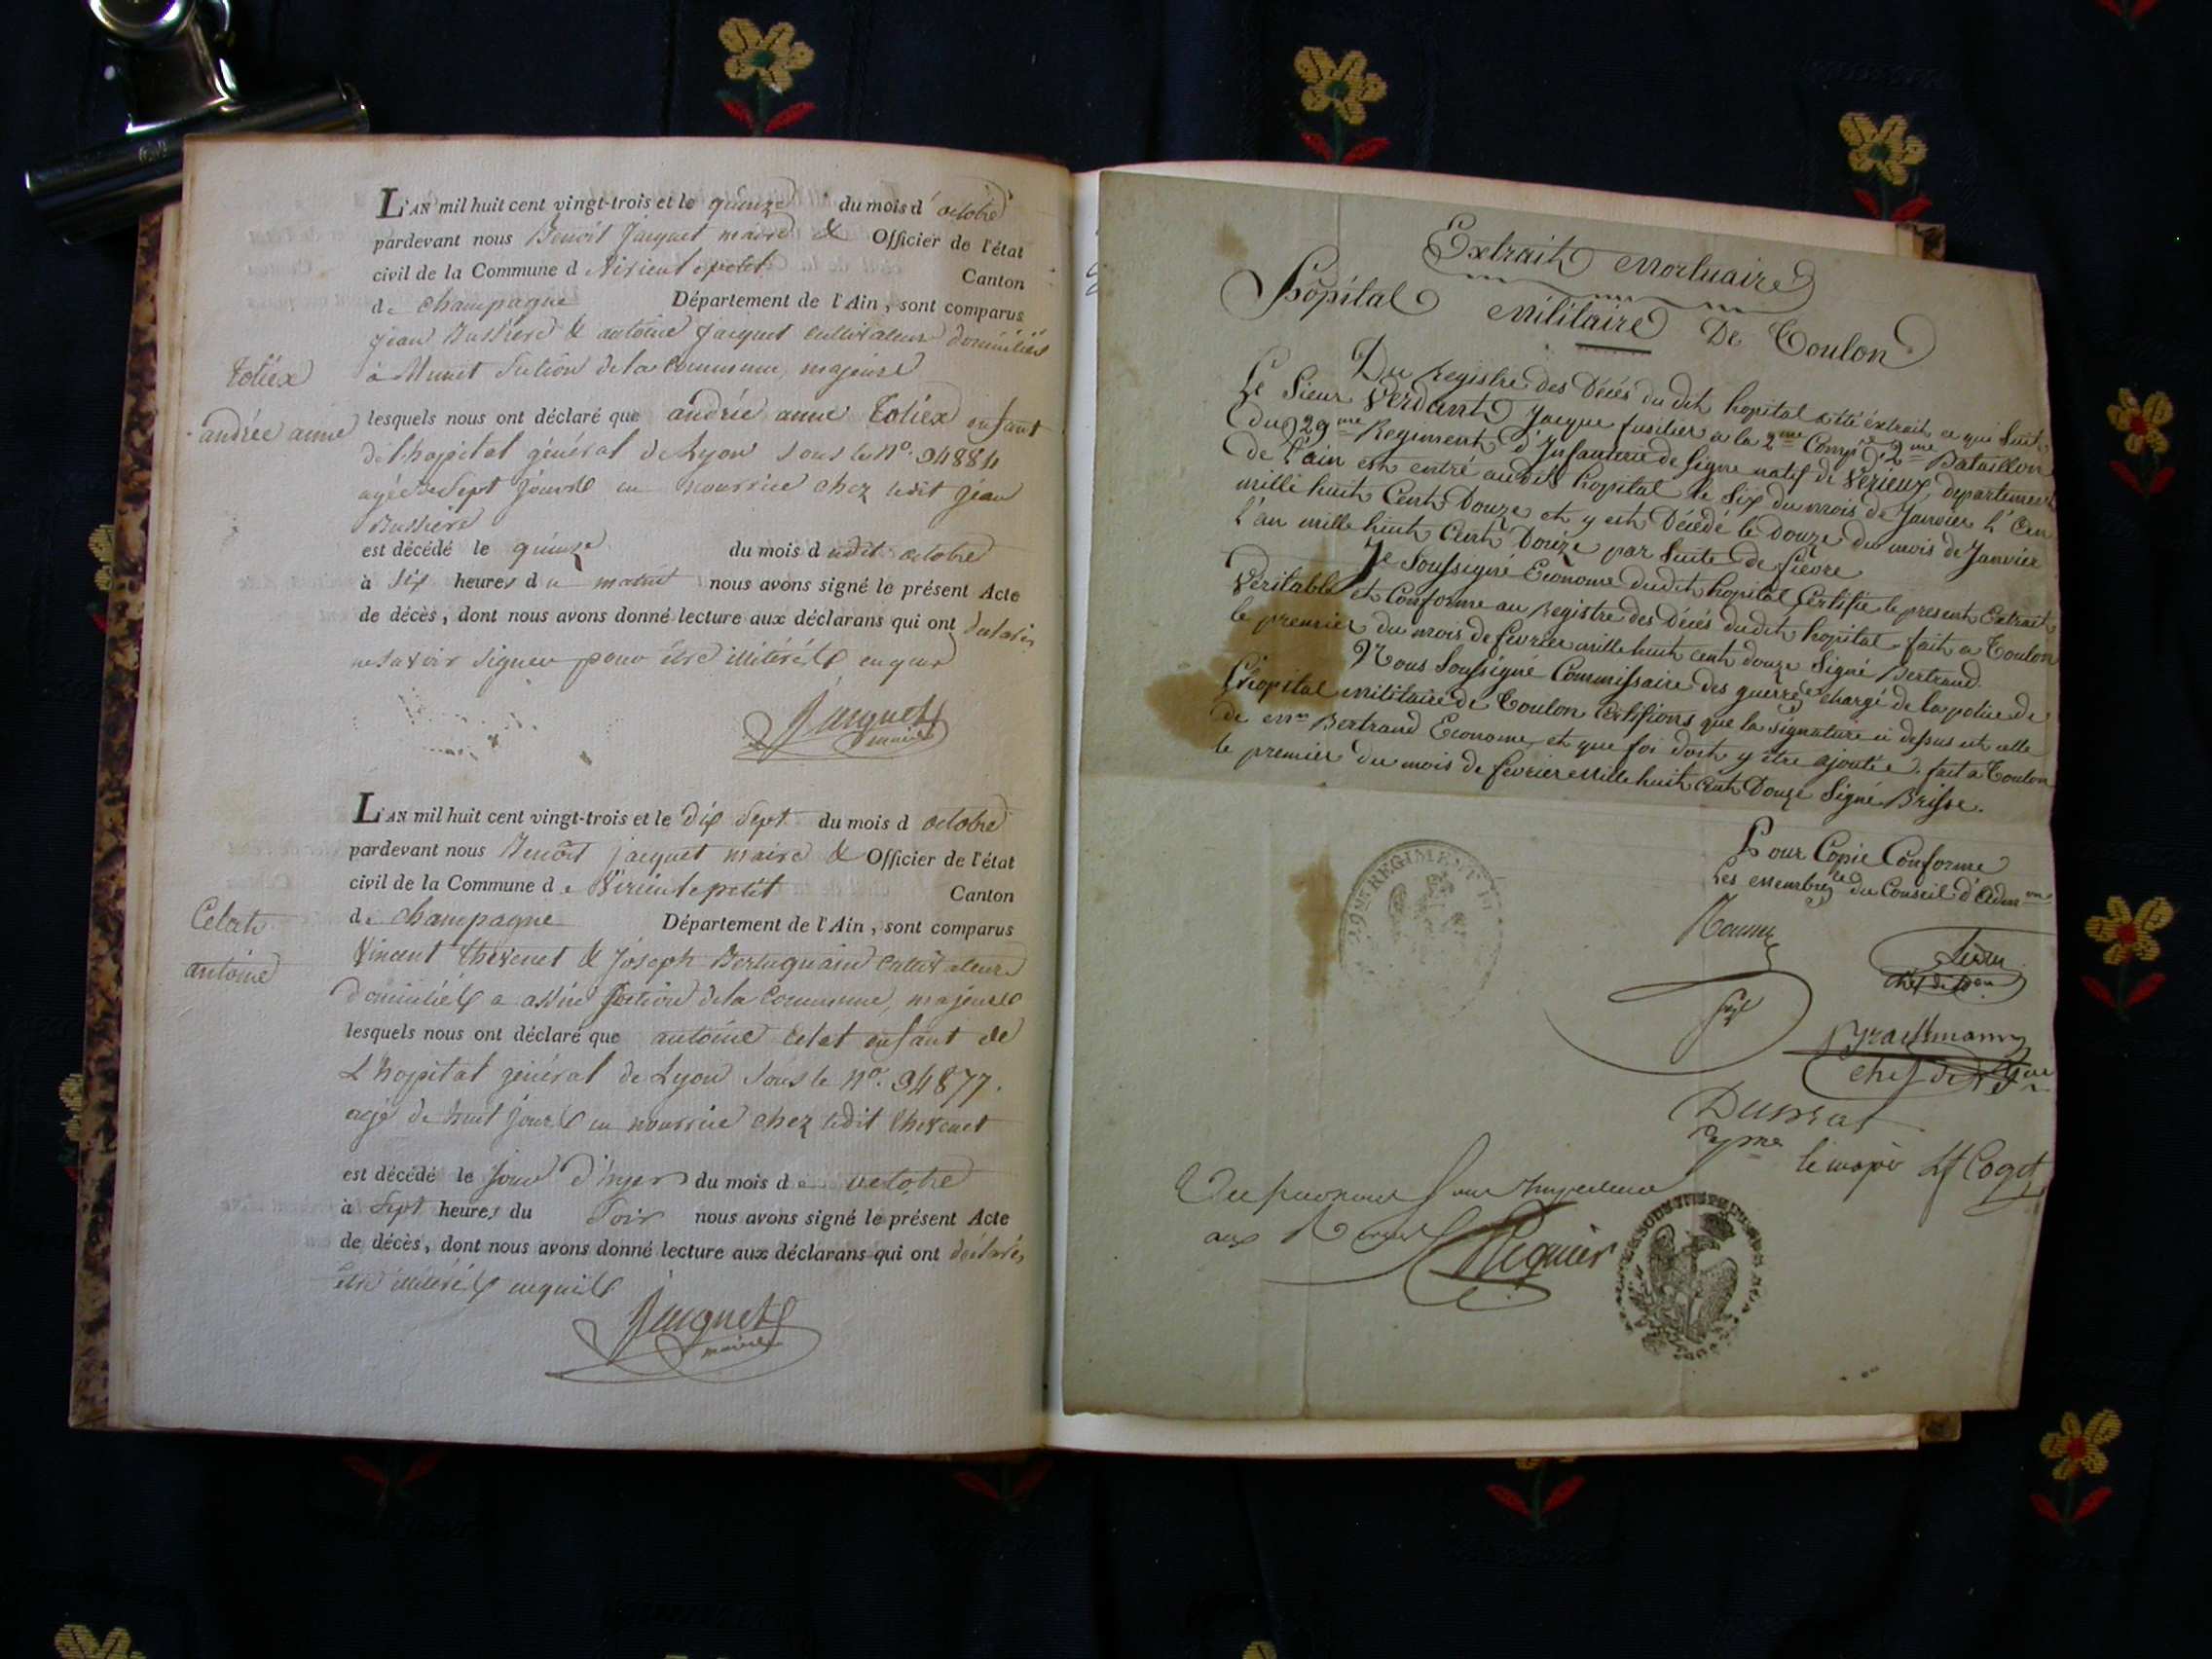 L'AN mil huit cent vingt-trois et le quinze du mois d'octobre
pardevant nous Benoit Jacquet maire & Officier de l'état
civil de la Commune de Virieu le petit Canton
de champagne Département de l'Ain, sont comparus
jean Bussiere & antoine jacquet cultivateurs domiciliés
à Munet section de la Commune, majeurs
toliex
andrée anne
lesquels nous ont déclaré que andrée anne toliex enfant
de l'hopital général de Lyon sous le no. 94884
agée de sept jours en nourrice chez ledit jean
Bussiere
est décédé le quinze du mois dudit octobre
à six heures du matin nous avons signé le présent Acte
de décès, dont nous avons donné lecture aux déclarans qui ont declarés
ne savoir signer pour être illitérés
Jacquet
maire
L'AN mil huit cent vingt-trois et le dix sept du mois d octobre
pardevant nous Benoit jacquet maire & Officier de l'état
civil de la Commune de Virieu le petit Canton
de champagne Département de l'Ain, sont comparus
Celat
antoine
Vincent thevenet & joseph cultivateurs
domiciliés a assin section de la Commune, majeurs
lesquels nous ont déclaré que antoine celat enfant de
L'hopital général de Lyon sous le no. 94877.
agé de huit jours en nourrice chez ledit thevenet
est décédé le jour d'hyer du mois d octobre
à sept heures du soir nous avons signé le présent Acte
de décès, dont nous avons donné lecture aux déclarans qui ont déclarés
être illitérés
Jacquet
maire
Extrait Mortuaire
Hôpital Militaire De Toulon
Du Registre des Décès du dit hopital a été extrait ce qui suit
Le Sieur Verdant Jacque fusilier a la 2me Compie d. 2me Bataillon
du 29me Regiment d'Infanterie de ligne natif de Verieux, departement
de l'ain est entré audit hopital le six du mois de Janvier l'an
mille huit Cent Douze et y est Décédé le Douze du mois de Janvier
l'an mille huit Cent Douze par suite de fievre
Je Soussigné Econome dudit hopital Certifie le present Extrait
Veritable et Conforme au Registre des Décès dudit hopital. fait a Toulon
le premier du mois de fevrier mille huit cent douze Signé Bertrand.
Nous Soussigné Commissaire des guerres chargé de la police de
L'hopital militaire de Toulon Certifions que la signature ci dessus est celle
de Mr Bertrand Econome, et que foi doit y être ajoutée. fait a Toulon
le premier du mois de fevrier Mille huit cent Douze Signé Brisse.
Pour Copie Conforme
Les Membres du Conseil d'Admon
29me REGIMENT
chef de Bon
le major
Vu par nous Sous Inspecteur
aux Revues
Pequier